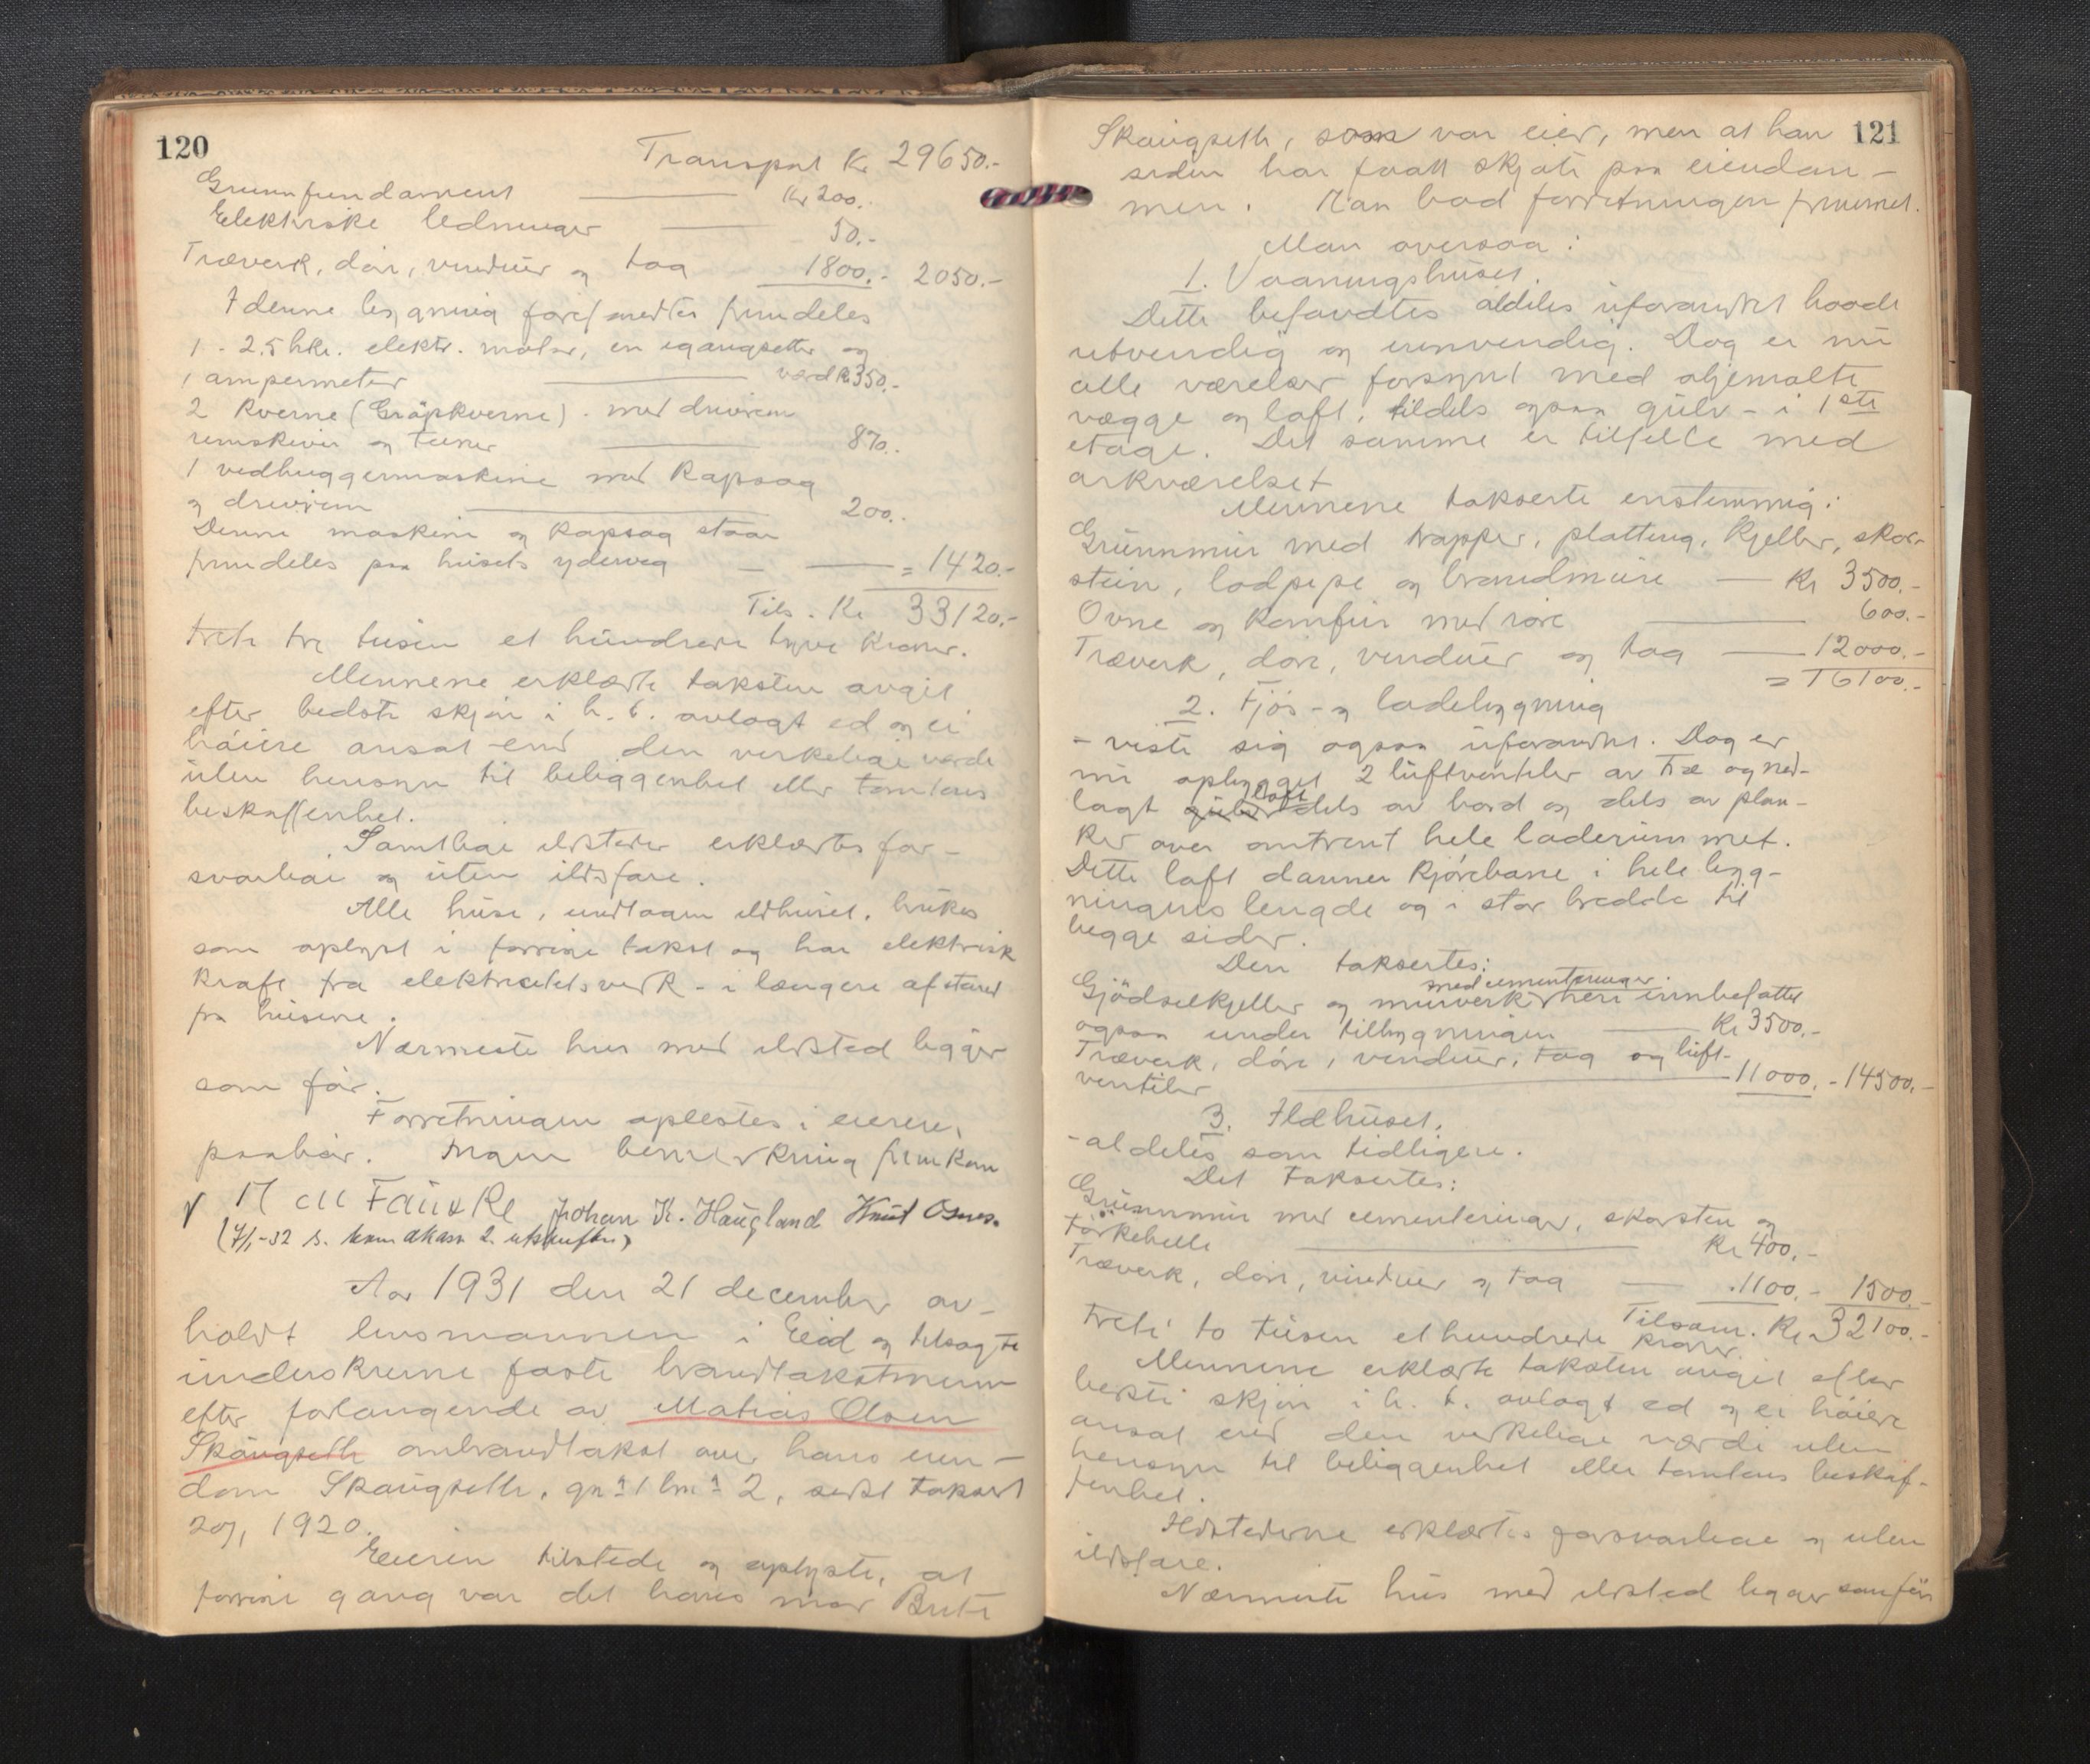 120
Transport Kr 29650.-
Grunnfundament Kr 200.-
Elektriske ledninger 50.-
Træverk, dør, vinduer og tag 1800.- 2050.-
I denne bygning forefandtes fremdeles
1 - 2.5 hkr. elektr. motor, en igangsetter og
1 ampermeter værd Kr 350.-
2 kverne (Gråpkverne) med drivrem
remskiver og 870.-
1 vedhuggermaskine med kapsag
og drivrem 200.-
Denne maskine og kapsag staar
fremdeles paa husets yderveg = 1420.-
Tils. Kr 33120.-
treti tre tusen et hundrede tyve kroner.
Mennene erklærte taksten avgit
efter bedste skjøn i h. t. avlagt ed og ei
høiere ansat end den virkelige værdi
uten hensyn til beliggenhet eller tomtens
beskaffenhet.
Samtlige ildsteder erklærtes for-
svarlige og uten ildsfare.
Alle huse, undtagen ildhuset, brukes
som oplyst i forrige takst og har elektrisk
kraft fra elektricitetsverk - i længere afstand
fra husene.
Nærmeste hus med ildsted ligger
som før.
Forretningen oplestes i eierens
paahør. Ingen bemerkning fremkom
Fauske Johan K. Haugland Knut Osnes.
(7/1-32 s. brandkassen 2 utskrifter)
Aar 1931 den 21 december av-
holdt lensmannen i Eid og tilsagte
underskrevne faste brandtakstmenn
efter forlangende av Matias Olsen
Skaugseth ombrandtakst over hans eien-
dom Skaugseth, gnr 1 bnr 2, sidst taksert
20/1 1920.
Eieren tilstede og oplyste, at
forrige gang var det hans mor Brite
121
Skaugseth, som var eier, men at han
siden har faatt skjøte paa eiendom-
men. Han bad forretningen fremmet.
Man oversaa:
1. Vaaningshuset.
Dette befandtes aldeles uforandret baade
utvendig og innvendig. Dog er nu
alle værelser forsynt med oljemalte
vægge og loft, tildels ogsaa gulv - i 1ste
etage. Det samme er tilfelle med
arkværelset
Mennene takserte enstemmig:
Grunnmur med trapper, platting, kjeller, skor-
stein, lodpipe og brandmure Kr 3500.-
Ovne og komfur med rør 600.-
Træverk, døre, vinduer og tag 12000.-
= 16100.-
2. Fjøs- og ladebygning
- viste sig ogsaa uforandret. Dog er
nu opbygget 2 luftventiler av træ og ned-
lagt gulv loft dels av bord og dels av plan-
ker over omtrent hele laderummet.
Dette loft danner kjørebane i hele byg-
ningens lengde og i stor bredde til
begge sider.
Den taksertes:
Gjødselkjeller og murverk med cementeringer heri innbefattet
ogsaa under tilbygningen Kr 3500.-
Træverk, døre, vinduer, tag og luft-
ventiler 11000.- 14500.-
3. Ildhuset.
- aldeles som tidligere.
Det taksertes:
Grunnmur med cementeringer, skorsten og
tørkehelle Kr 400.-
Træverk, døre, vinduer og tag 1100.- 1500.-
Tilsam. Kr 32100.-
treti to tusen et hundrede kroner.
Mennene erklærte taksten avgit efter
beste skjøn i h. t. avlagt ed og ei høiere
ansat end den virkelige værdi uten
hensyn til beliggenhet eller tomtens beskaf-
fenhet.
Ildstederne erklærtes forsvarlige og uten
ildsfare.
Nærmeste hus med ildsted ligger som før